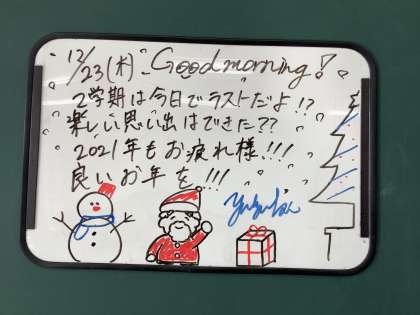 12/23(木) Good morning!
2学期は今日でラストだよ!?
楽しい思い出はできた??
2021年もお疲れ様!!!
良いお年を!!!